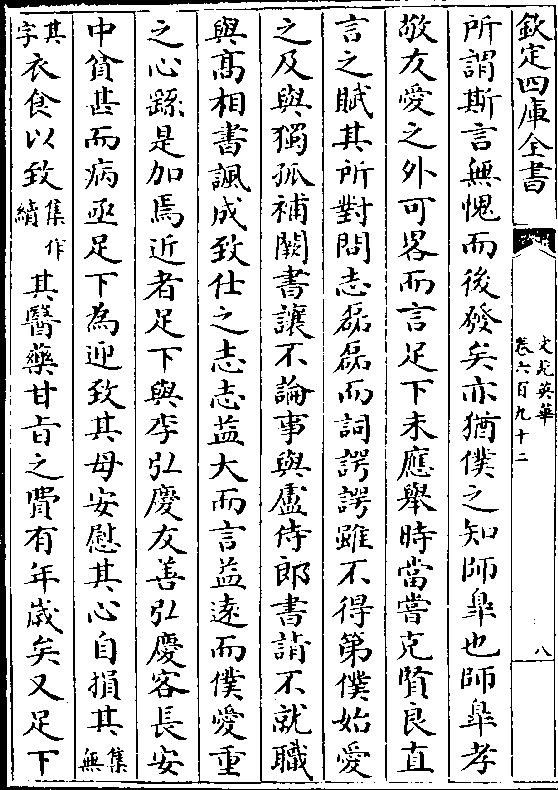 欽定四庫全書
文苑英華
卷六百九十二
八
所謂斯言無愧而後發矣亦猶僕之知師臯也師臯孝
敬友愛之外可畧而言足下未應舉時當嘗充賢良直
言之賦其所對問志磊磊而詞諤諤雖不得第僕始愛
之及與獨孤補闕書讓不論事與盧侍郎書請不就職
與髙相書諷成致仕之志志益大而言益遠而僕愛重
之心繇是加焉近者足下與李弘慶友善弘慶客長安
中貧甚而病亟足下為迎致其母安慰其心自損其集無
其字衣食以致集作績其醫藥甘旨之費有年歲矣又足下